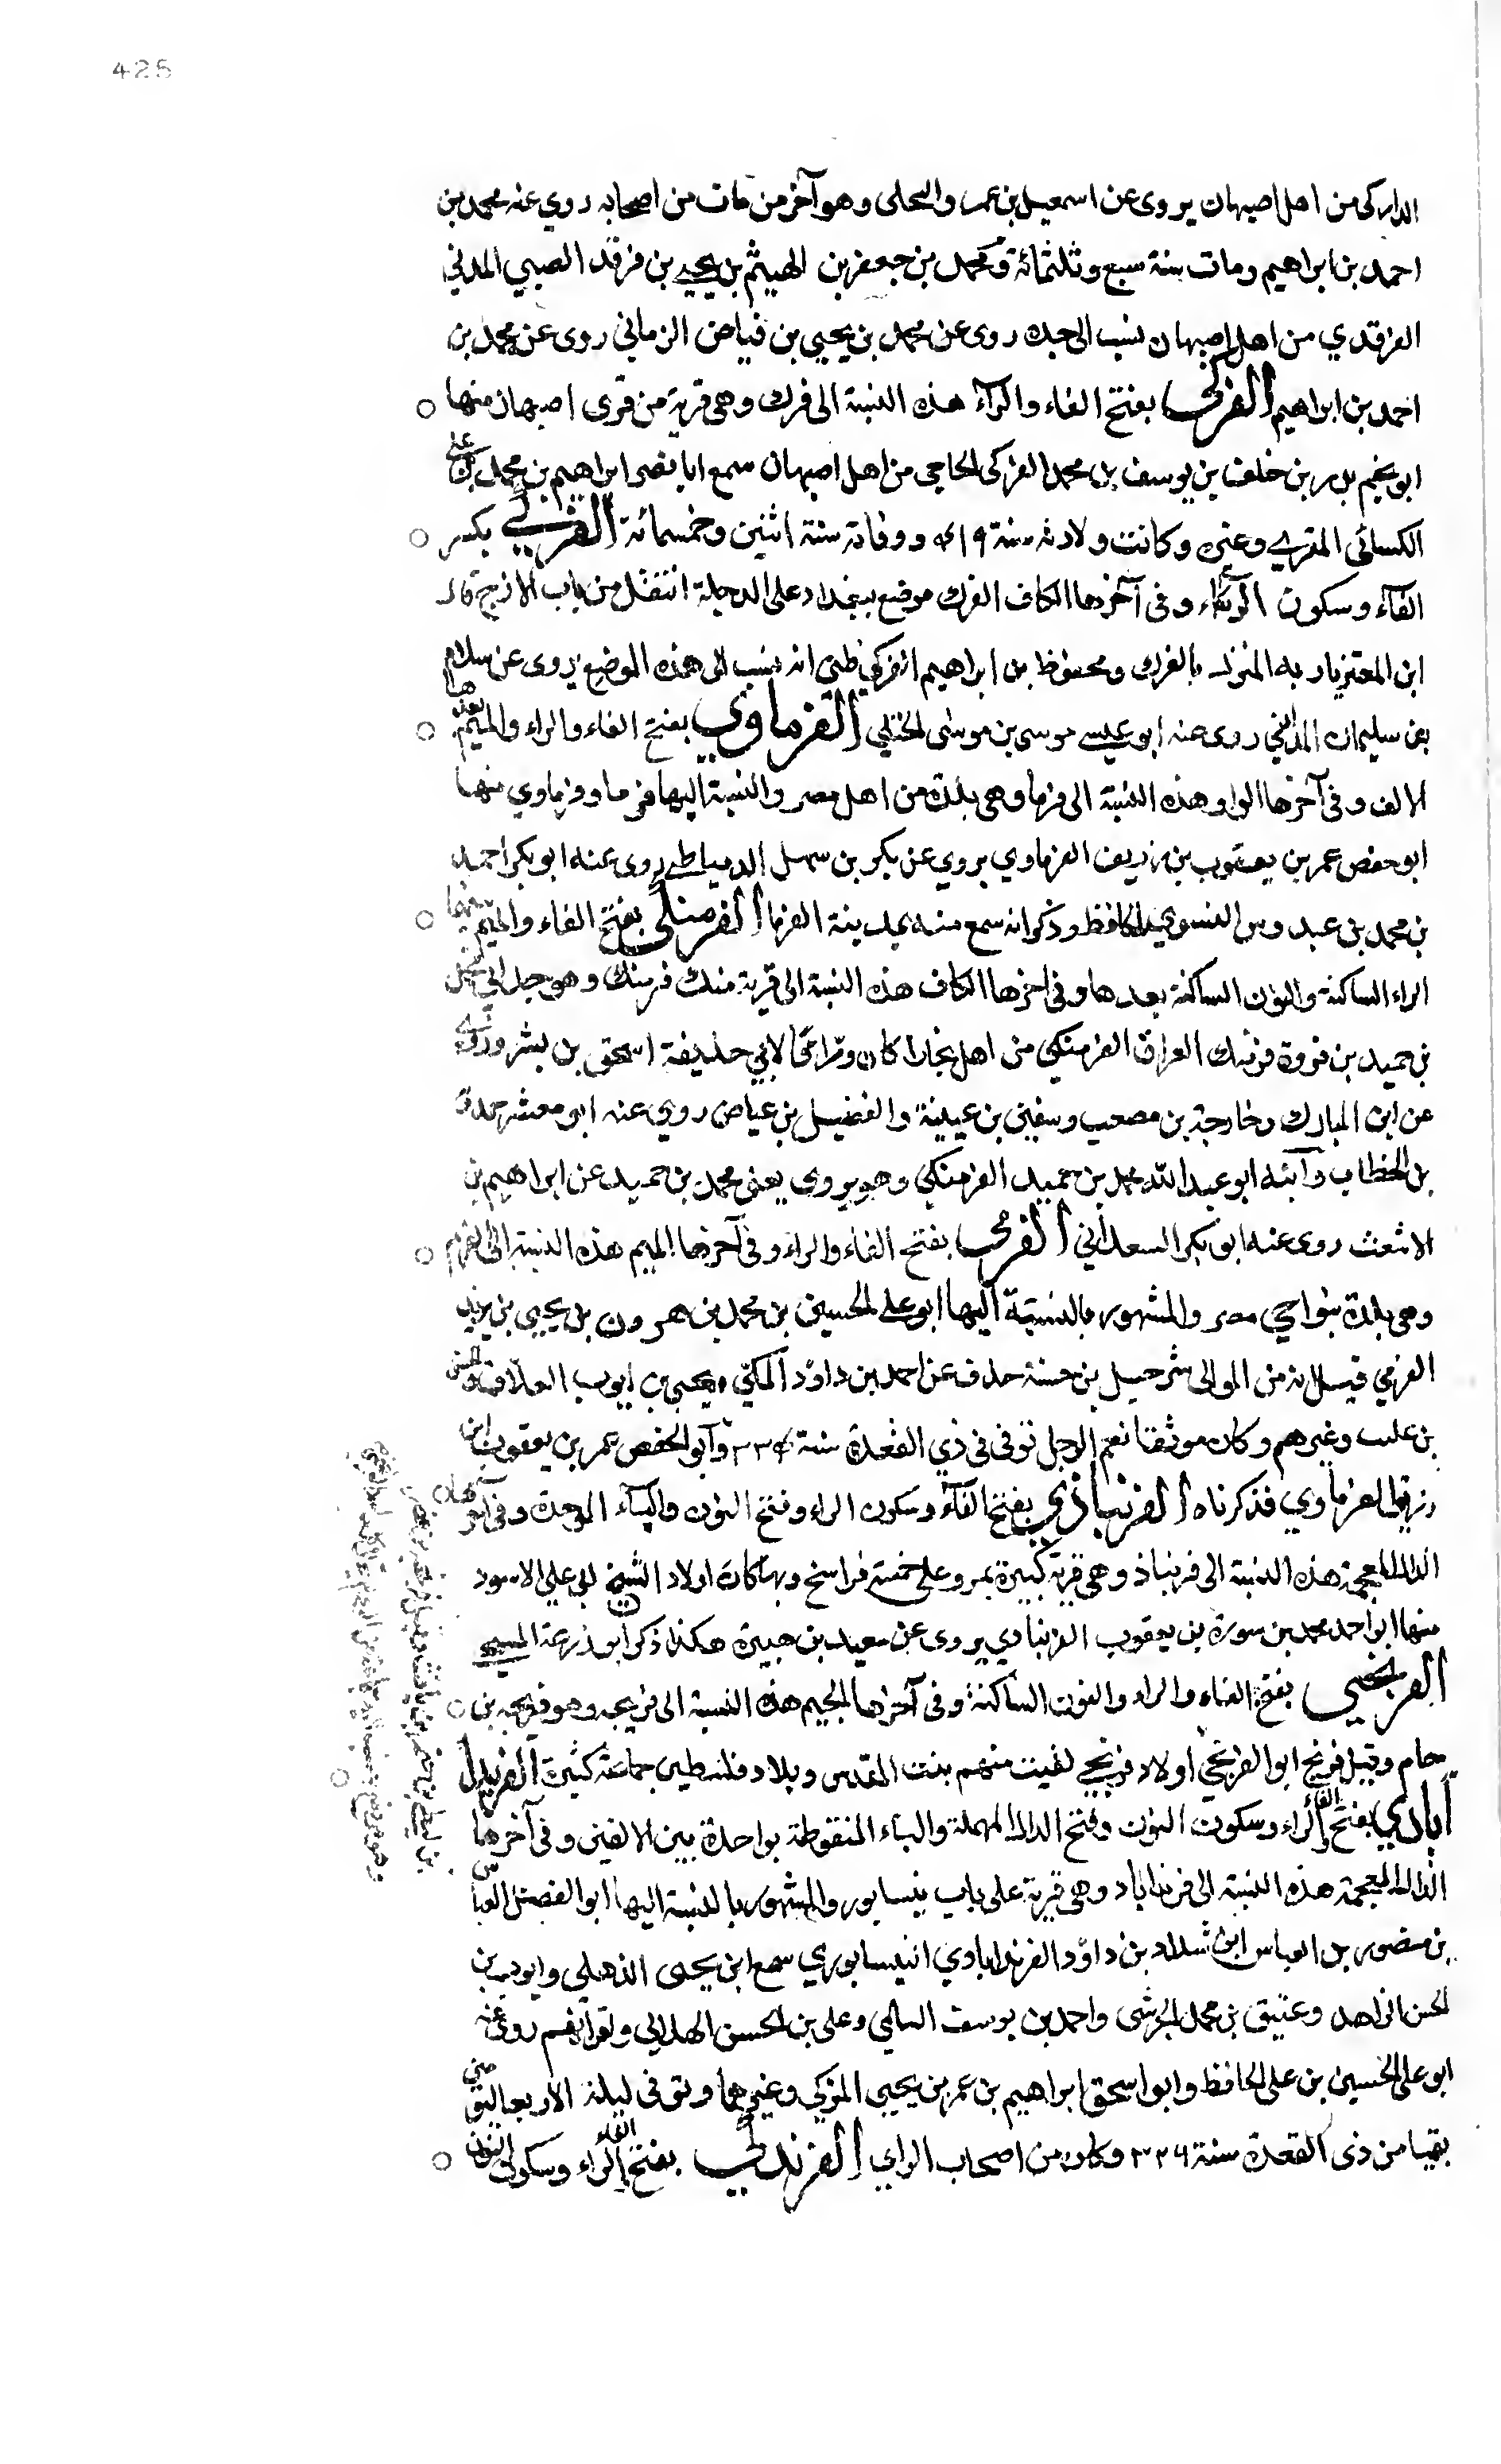 425
الداركى من اهل اصبهان يروى عن اسمعيل بن عمرو البجلى وهو آخر من مات من اصحابه روي عنه محمد بن
احمد بن ابراهيم ومات سنة سبع وثلثمائة ومحمد بن جعفر بن الهيثم بن يحيى بن فرقد الضبي المدني
الفرقدي من اهل اصبهان نسب الى جده روى عن محمد بن يحيى بن فياض الزماني روى عن محمد بن
احمد بن ابراهيم الفركي بفتح الفاء والراء هذه النسبة الى فرك وهى قرية من قرى اصبهان منها
ابو نجم بدر بن خلف بن يوسف بن محمد الفركى الحاجى من اهل اصبهان سمع ابا نصر ابراهيم بن محمد بن على
الكسائى المقرى وغيره وكانت ولادته سنة ووفاته سنة اثنين وخمسمائة الفركي بكسر
الفاء وسكون الراء وفى آخرها الكاف الفرك موضع ببغداد على الدجلة انتقل من باب الازج قال
ابن المعتز يا ربة المنزل بالفرك ومحفوظ بن ابراهيم الفركي ظني انه ينسب الى هذه الموضع يروى عن سلام
بن سليمان المدائني روى عنه ابو عيسى موسى بن موسى الختلي الفرماوي بفتح الفاء والراء والميم بعدها
الالف وفى آخرها الواو هذه النسبة الى فرما وهى بلدة من اهل مصر والنسبة اليها فرما وفرماوي منها
ابو حفص عمر بن يعقوب بن زريق الفرماوي يروي عن بكر بن سهل الدمياطى روى عنه ابو بكر احمد
بن محمد بن عبدوس النسوي الحافظ وذكر انه سمع منه بمدينة الفرما الفرمنكي بفتح الفاء والميم بينهما
الراء الساكنة والنون الساكنة بعدها وفى اخرها الكاف هذه النسبة الى قرية فرمنك وهو جد ابي
بن حميد بن فروة الفرمنكي من اهل بخارا كان وراقا لابي حذيفة اسحق بن بشر وروى
عن ابن المبارك وخارجة بن مصعب وسفين بن عيينة والفضيل بن عياض روي عنه ابو معشر حمدويه
بن الخطاب وابنه ابو عبد الله محمد بن حميد الفرمنكي وهو يروى يعني محمد بن حميد عن ابراهيم بن
الاشعث روى عنه ابو بكر السعداني الفرمي بفتح الفاء والراء وفى آخرها الميم هذه النسبة الى الفرم
وهى بلدة بنواحي مصر والمشهور بالنسبة اليها ابو على الحسين بن محمد بن هرون بن يحيى بن يزيد
الفرمي قيل انه من الموالى شرحبيل بن حسنة حدث عن احمد بن داود المكي ويحيى بن ايوب العلاف والحسن
بن غليب وغيرهم وكان موثقا نعم الرجل توفى فى ذي القعدة سنة ٣٣٤ وابو الحفص عمر بن يعقوب بن
زريق الفرماوي فذكرناه الفرنباذي بفتح الفاء وسكون الراء وفتح النون والباء الموحدة وفى آخرها
الذال المعجمة هذه النسبة الى فرنباذ وهى قرية كبيرة بمرو على خمسة فراسخ وبها كان اولاد الشيخ ابى علي الاسود
منها ابو احمد محمد بن سورة بن يعقوب الفرنباذي يروى عن سعيد بن هبيرة هكذا ذكر ابو زرعة المسيحي
الفرنجي بفتح الفاء والراء والنون الساكنة وفى آخرها الجيم هذه النسبة الى فرنجه وهو فرنجه بن
حام وقيل فرنج ابو الفرنجي اولاد فرنجي لقيت منهم ببيت المقدس وبلاد فلسطين جماعة كثيرة الفرندا
باذي بفتح الفاء والراء وسكون النون وفتح الدال المهملة والباء المنقوطة بواحدة بين الالفين وفى آخرها
الذال المعجمة هذه النسبة الى فرنداباد وهى قرية على باب نيسابور والمشهور بالنسبة اليها ابو الفضل العباس
بن منصور بن العباس ابن شداد بن داود الفرنداباذي النيسابوري سمع ابن يحيى الذهلي وايوب بن
الحسن الزاهد وعتيق بن محمد الجرشى واحمد بن يوسف السلمي وعلى بن الحسن الهلالي واقرانهم روى عنه
ابو على الحسين بن على الحافظ وابو اسحق ابراهيم بن عمر بن يحيى المزكي وغيرهما وتوفى ليلة الاربعا
بقيا من ذى القعدة سنة ٣٢٦ وكان من اصحاب الراي الفرندي بفتح الفاء والراء وسكون النون